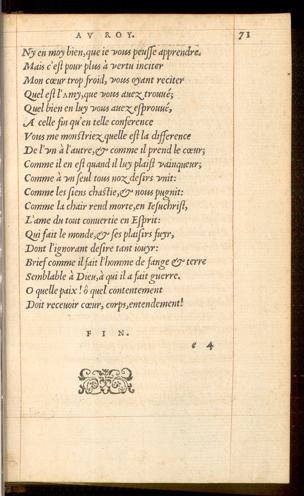 AV ROY. 71
Ny en moy bien, que ie vous peusse apprendre.
Mais c'est pour plus à vertu inciter
Mon cœur trop froid, vous oyant reciter
Quel est l'Amy, que vous auez trouué;
Quel bien en luy vous auez esprouué,
A celle fin qu'en telle conference
Vous me monstriez quelle est la difference
De l'vn à l'autre, & comme il prend le cœur;
Comme il en est quand il luy plaist vainqueur;
Comme à vn seul tous noz desirs vnit:
Comme les siens chastie, & nous pugnit:
Comme la chair rend morte, en Iesuchrist,
L'ame du tout conuertie en Esprit:
Qui fait le monde, & ses plaisirs fuyr,
Dont l'ignorant desire tant iouyr:
Brief comme il fait l'homme de fange & terre
Semblable à Dieu, à qui il a fait guerre.
O quelle paix! ô quel contentement
Doit receuoir cœur, corps, entendement!
FIN.
e 4